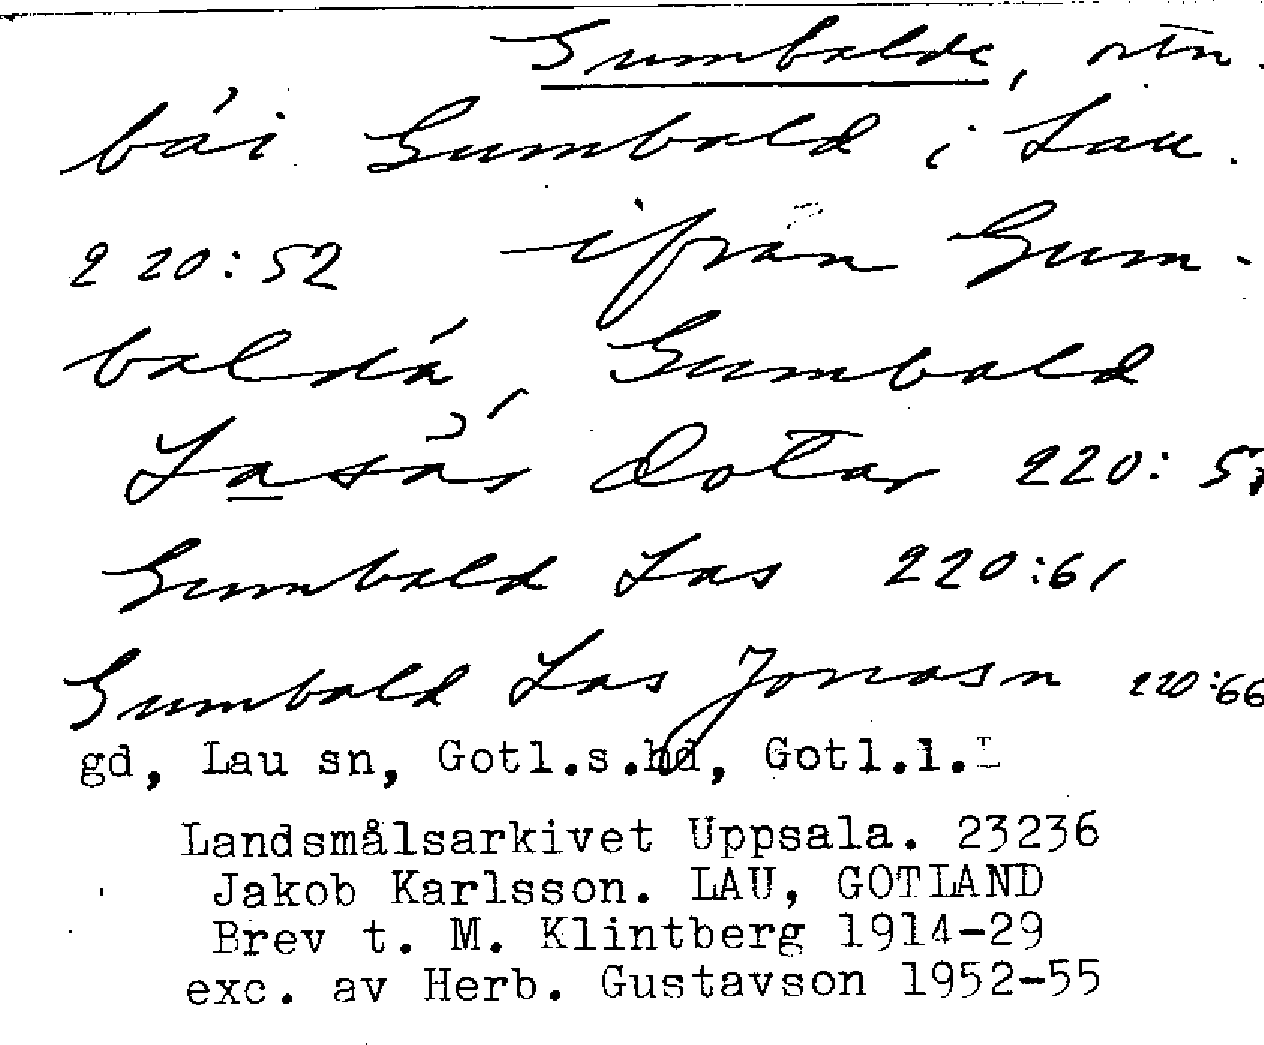 Gumbalde, ortn.
bái Gumbald i Lau.
220:52 ifrån Gum-
baldá, Gumbald
Lasás dotar 220:57
Gumbald Las 220:61
Gumbald Las Jonasn 220:66
gd, Lau sn, Gotl.s.hd, Gotl.l.I
Landsmålsarkivet Uppsala. 23236
Jakob Karlsson. LAU, GOTLAND
Brev t. M. Klintberg 1914-29
exc. av Herb. Gustavson 1952-55